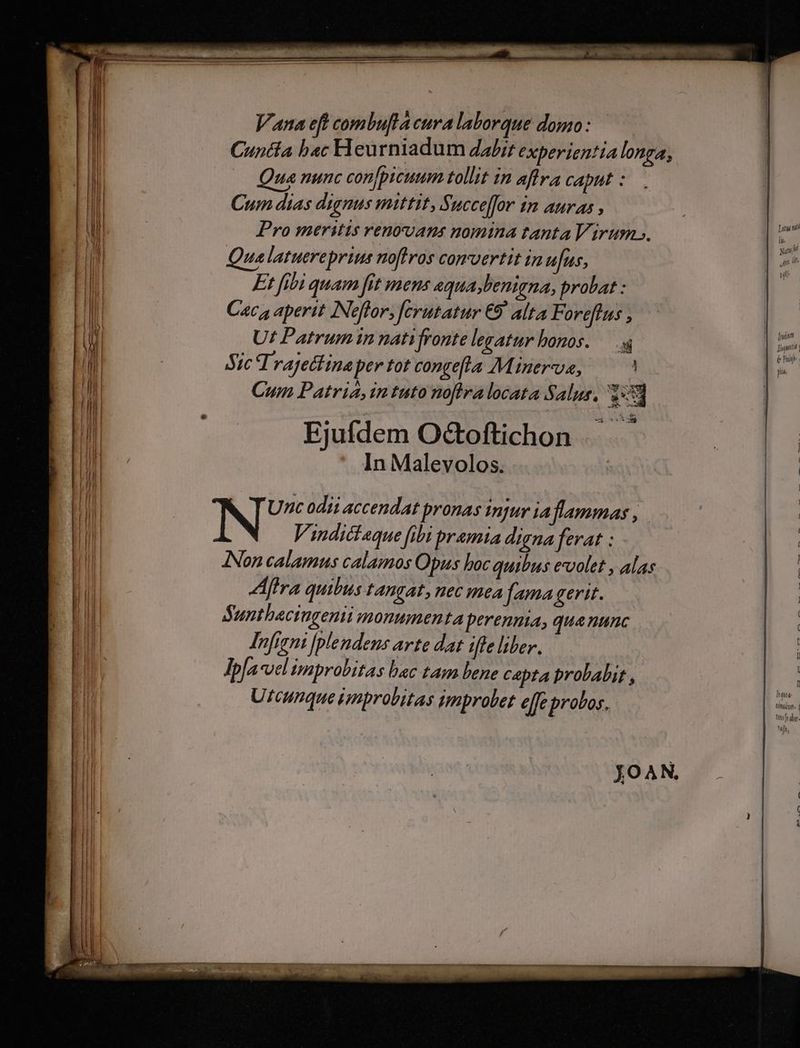 Vana eſt combuſtâ cura laborque domo:
Cuncta hæc Heurniadum dabit experientia longa,
Quæ nunc conſpicuum tollit in aſtra caput :
Cum dias dignus mittit, Succeſſor in auras ,
Pro meritis renovans nomina tanta Virûm.
Quæ latuere prius noſtros convertit in uſus,
Et ſibi quam ſit mens æqua, benigna, probat :
Cæca aperit Neſtor, ſcrutatur & alta Foreſtus ,
Ut Patrum in nati fronte legatur honos.
Sic Trajectinæ per tot congeſta Minervæ,
Cum Patriâ, in tuto noſtra locata Salus.
Ejuſdem Octoſtichon
In Malevolos.
NUnc odii accendat pronas injuria flammas ,
Vindictæque ſibi præmia digna ferat :
Non calamus calamos Opus hoc quibus evolet , alas
Aſtra quibus tangat, nec mea fama gerit.
Sunt hæc ingenii monumenta perennia, quæ nunc
Inſigni ſplendens arte dat iſte liber.
Ipſa vel improbitas hæc tam bene cœpta probabit ,
Utcunque improbitas improbet eſſe probos.
JOAN.